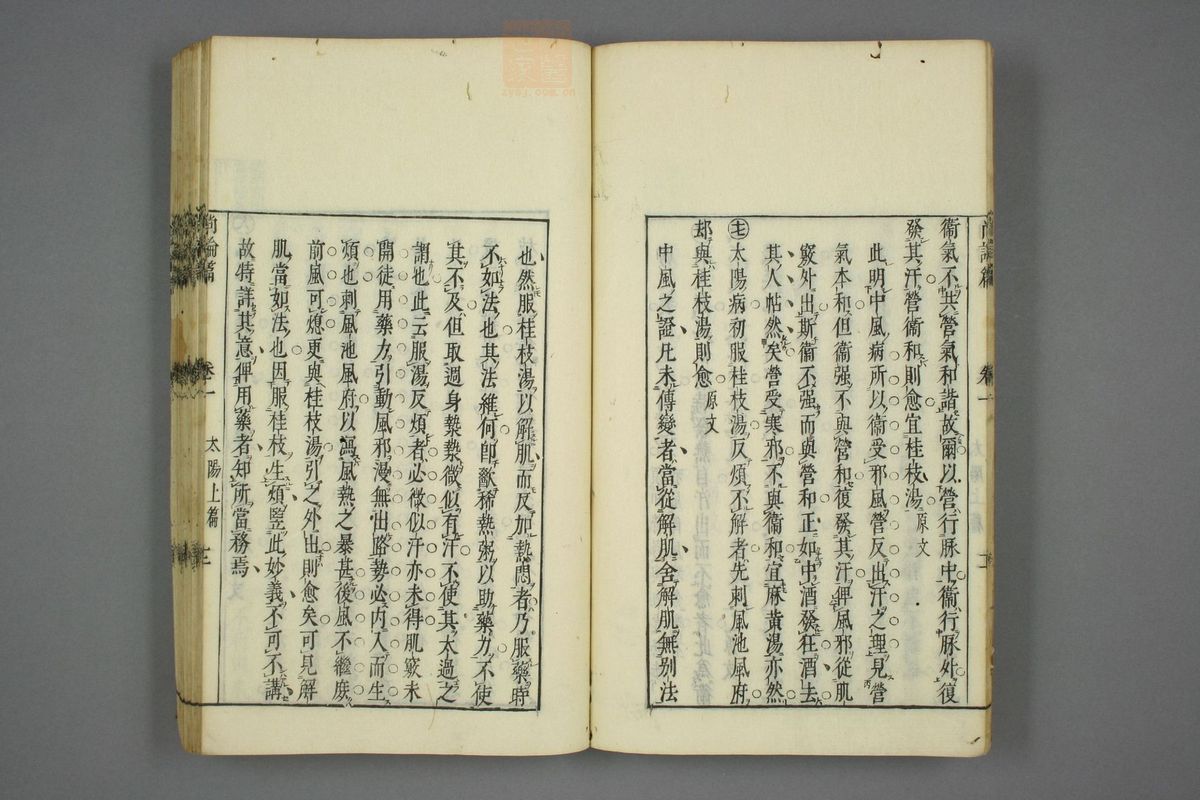 衞氣不共營氣和諧故爾以營行脉中衞行脉外復
發其汗營衞和則愈宜桂枝湯 原文
此明中風病所以衞受邪風營反出汗之理見營
氣本和但衞强不與營和復發其汗俾風邪從肌
竅外出斯衞不强而與營和正如中酒發狂酒去
其人帖然矣營受寒邪不與衞和宜麻黄湯亦然
㊆太陽病初服桂枝湯反煩不解者先刺風池風府
却與桂枝湯則愈 原文
中風之證凡未傳變者當從解肌舍解肌無别法
也然服桂枝湯以解肌而反加熱悶者乃服藥時
不如法也其法維何卽歠稀熱粥以助藥力不使
其不及但取週身漐漐微似有汗不使其太過之
謂也此云服湯反煩者必微似汗亦未得肌竅未
開徒用藥力引動風邪漫無出路勢必内入而生
煩也刺風池風府以瀉風熱之暴甚後風不繼庶
前風可熄更與桂枝湯引之外出則愈矣可見解
肌當如法也因服桂枝生煩竪此妙義不可不講
故特詳其意俾用藥者知所當務焉
尚論篇 卷一 太陽上篇
醫家
zysj.com.cn